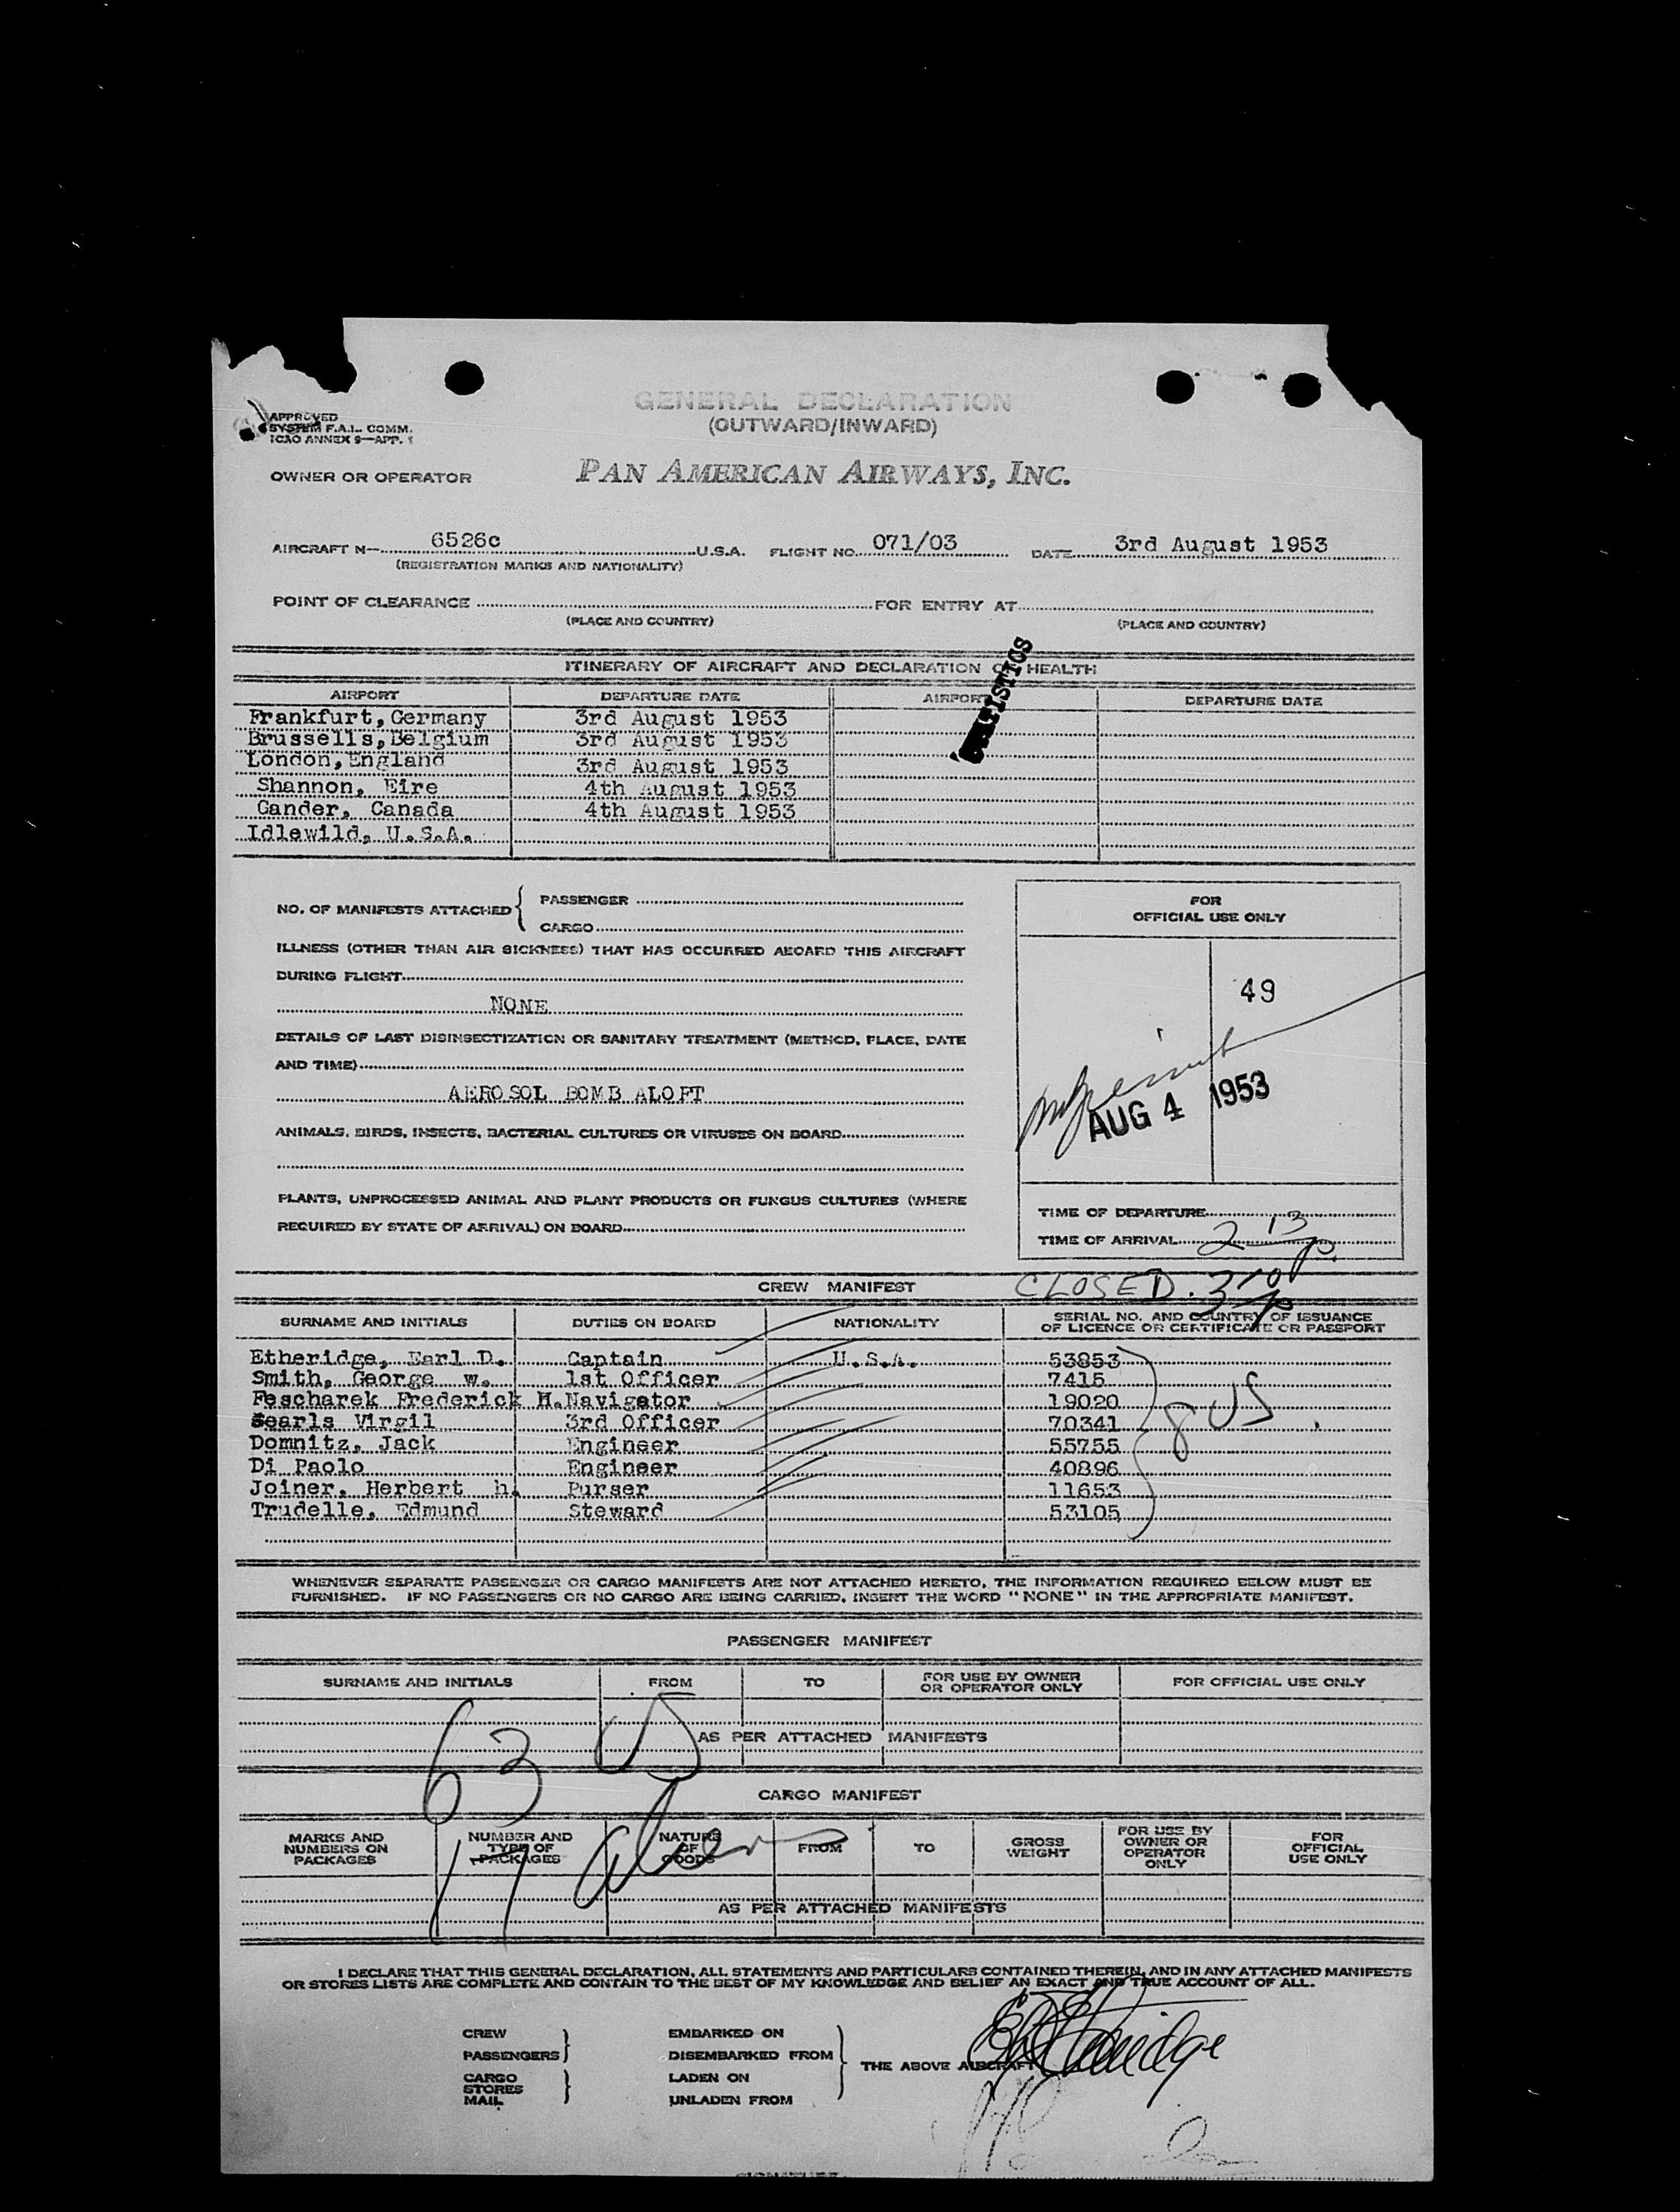 GENERAL DECLARATION
(OUTWARD/INWARD)
APPROVED
SYSTEM F.A.L. COMM.
ICAO ANNEX 9—APP. 1
OWNER OR OPERATOR PAN AMERICAN AIRWAYS, INC.
AIRCRAFT N— 6526c U.S.A. FLIGHT NO. 071/03 DATE 3rd August 1953
(REGISTRATION MARKS AND NATIONALITY)
POINT OF CLEARANCE FOR ENTRY AT
(PLACE AND COUNTRY) (PLACE AND COUNTRY)
ITINERARY OF AIRCRAFT AND DECLARATION OF HEALTH
AIRPORT DEPARTURE DATE AIRPORT DEPARTURE DATE
Frankfurt, Germany 3rd August 1953
Brussells, Belgium 3rd August 1953
London, England 3rd August 1953
Shannon, Eire 4th August 1953
Gander, Canada 4th August 1953
Idlewild, U.S.A.
NO. OF MANIFESTS ATTACHED { PASSENGER
CARGO
ILLNESS (OTHER THAN AIR SICKNESS) THAT HAS OCCURRED ABOARD THIS AIRCRAFT
DURING FLIGHT
NONE
DETAILS OF LAST DISINSECTIZATION OR SANITARY TREATMENT (METHOD, PLACE, DATE
AND TIME)
AEROSOL BOMB ALOFT
ANIMALS, BIRDS, INSECTS, BACTERIAL CULTURES OR VIRUSES ON BOARD
PLANTS, UNPROCESSED ANIMAL AND PLANT PRODUCTS OR FUNGUS CULTURES (WHERE
REQUIRED BY STATE OF ARRIVAL) ON BOARD
FOR
OFFICIAL USE ONLY
49
AUG 4 1953
TIME OF DEPARTURE
TIME OF ARRIVAL 2 13 p.
CREW MANIFEST CLOSED. 3 10 p
SURNAME AND INITIALS DUTIES ON BOARD NATIONALITY SERIAL NO. AND COUNTRY OF ISSUANCE
OF LICENCE OR CERTIFICATE OR PASSPORT
Etheridge, Earl D. Captain U.S.A. 53853
Smith, George w. 1st Officer 7415
Pescharek Frederick H. Navigator 19020
Searls Virgil 3rd Officer 70341
Domnitz, Jack Engineer 55755
Di Paolo Engineer 40896
Joiner, Herbert h. Purser 11653
Trudelle, Edmund Steward 53105
8 US.
WHENEVER SEPARATE PASSENGER OR CARGO MANIFESTS ARE NOT ATTACHED HERETO, THE INFORMATION REQUIRED BELOW MUST BE
FURNISHED. IF NO PASSENGERS OR NO CARGO ARE BEING CARRIED, INSERT THE WORD "NONE" IN THE APPROPRIATE MANIFEST.
PASSENGER MANIFEST
SURNAME AND INITIALS FROM TO FOR USE BY OWNER
OR OPERATOR ONLY FOR OFFICIAL USE ONLY
AS PER ATTACHED MANIFESTS
63 US
CARGO MANIFEST
MARKS AND
NUMBERS ON
PACKAGES NUMBER AND
TYPE OF
PACKAGES NATURE
OF
GOODS FROM TO GROSS
WEIGHT FOR USE BY
OWNER OR
OPERATOR
ONLY FOR
OFFICIAL
USE ONLY
17 aliens
AS PER ATTACHED MANIFESTS
I DECLARE THAT THIS GENERAL DECLARATION, ALL STATEMENTS AND PARTICULARS CONTAINED THEREIN, AND IN ANY ATTACHED MANIFESTS
OR STORES LISTS ARE COMPLETE AND CONTAIN TO THE BEST OF MY KNOWLEDGE AND BELIEF AN EXACT AND TRUE ACCOUNT OF ALL.
CREW EMBARKED ON
PASSENGERS DISEMBARKED FROM
THE ABOVE AIRCRAFT
CARGO LADEN ON
STORES
MAIL UNLADEN FROM
ED Etheridge
SIGNATURE